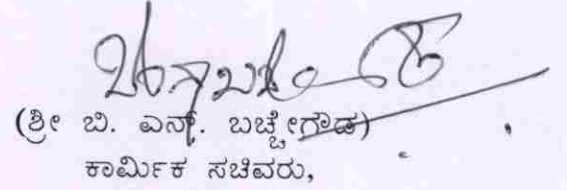 (ಶ್ರೀ ಬಿ. ಎನ್. ಬಚ್ಚೇಗೌಡ)
ಕಾರ್ಮಿಕ ಸಚಿವರು,